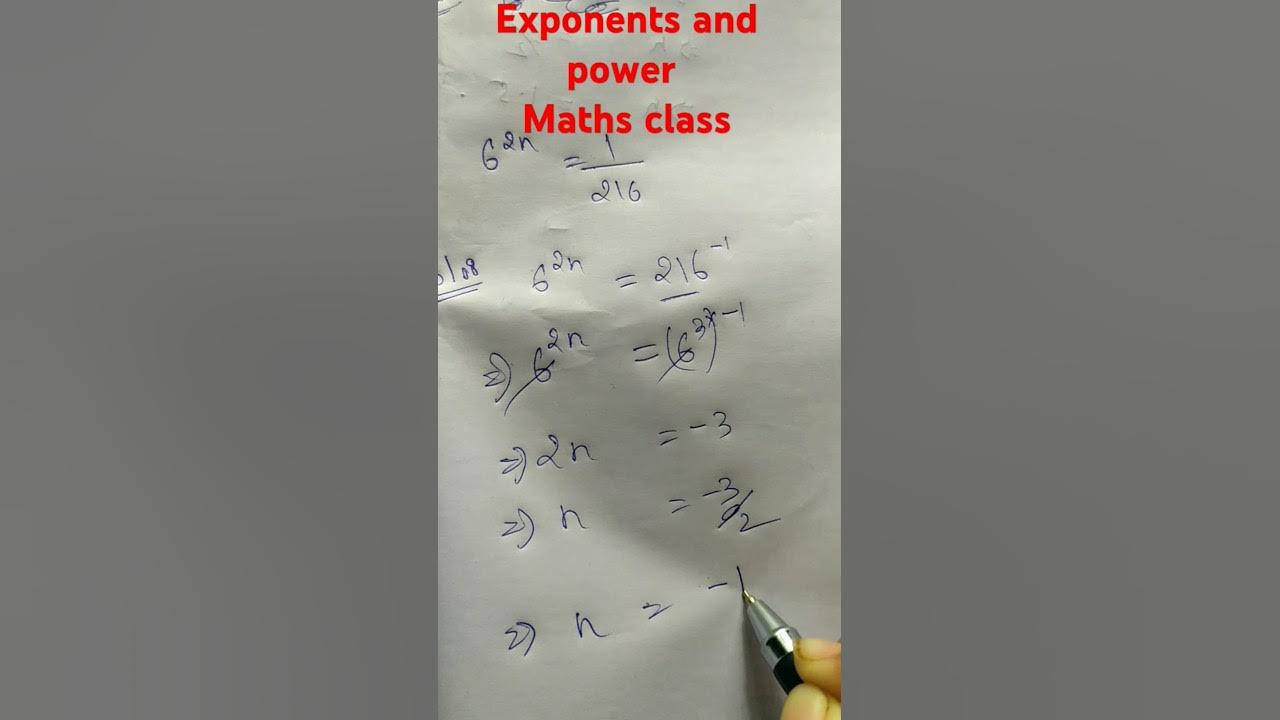 Exponents and
power
Maths class
6^2n = 1/216
6^2n = 216^-1
⇒ 6^2n = (6^3)^-1
⇒ 2n = -3
⇒ n = -3/2
⇒ n = -1